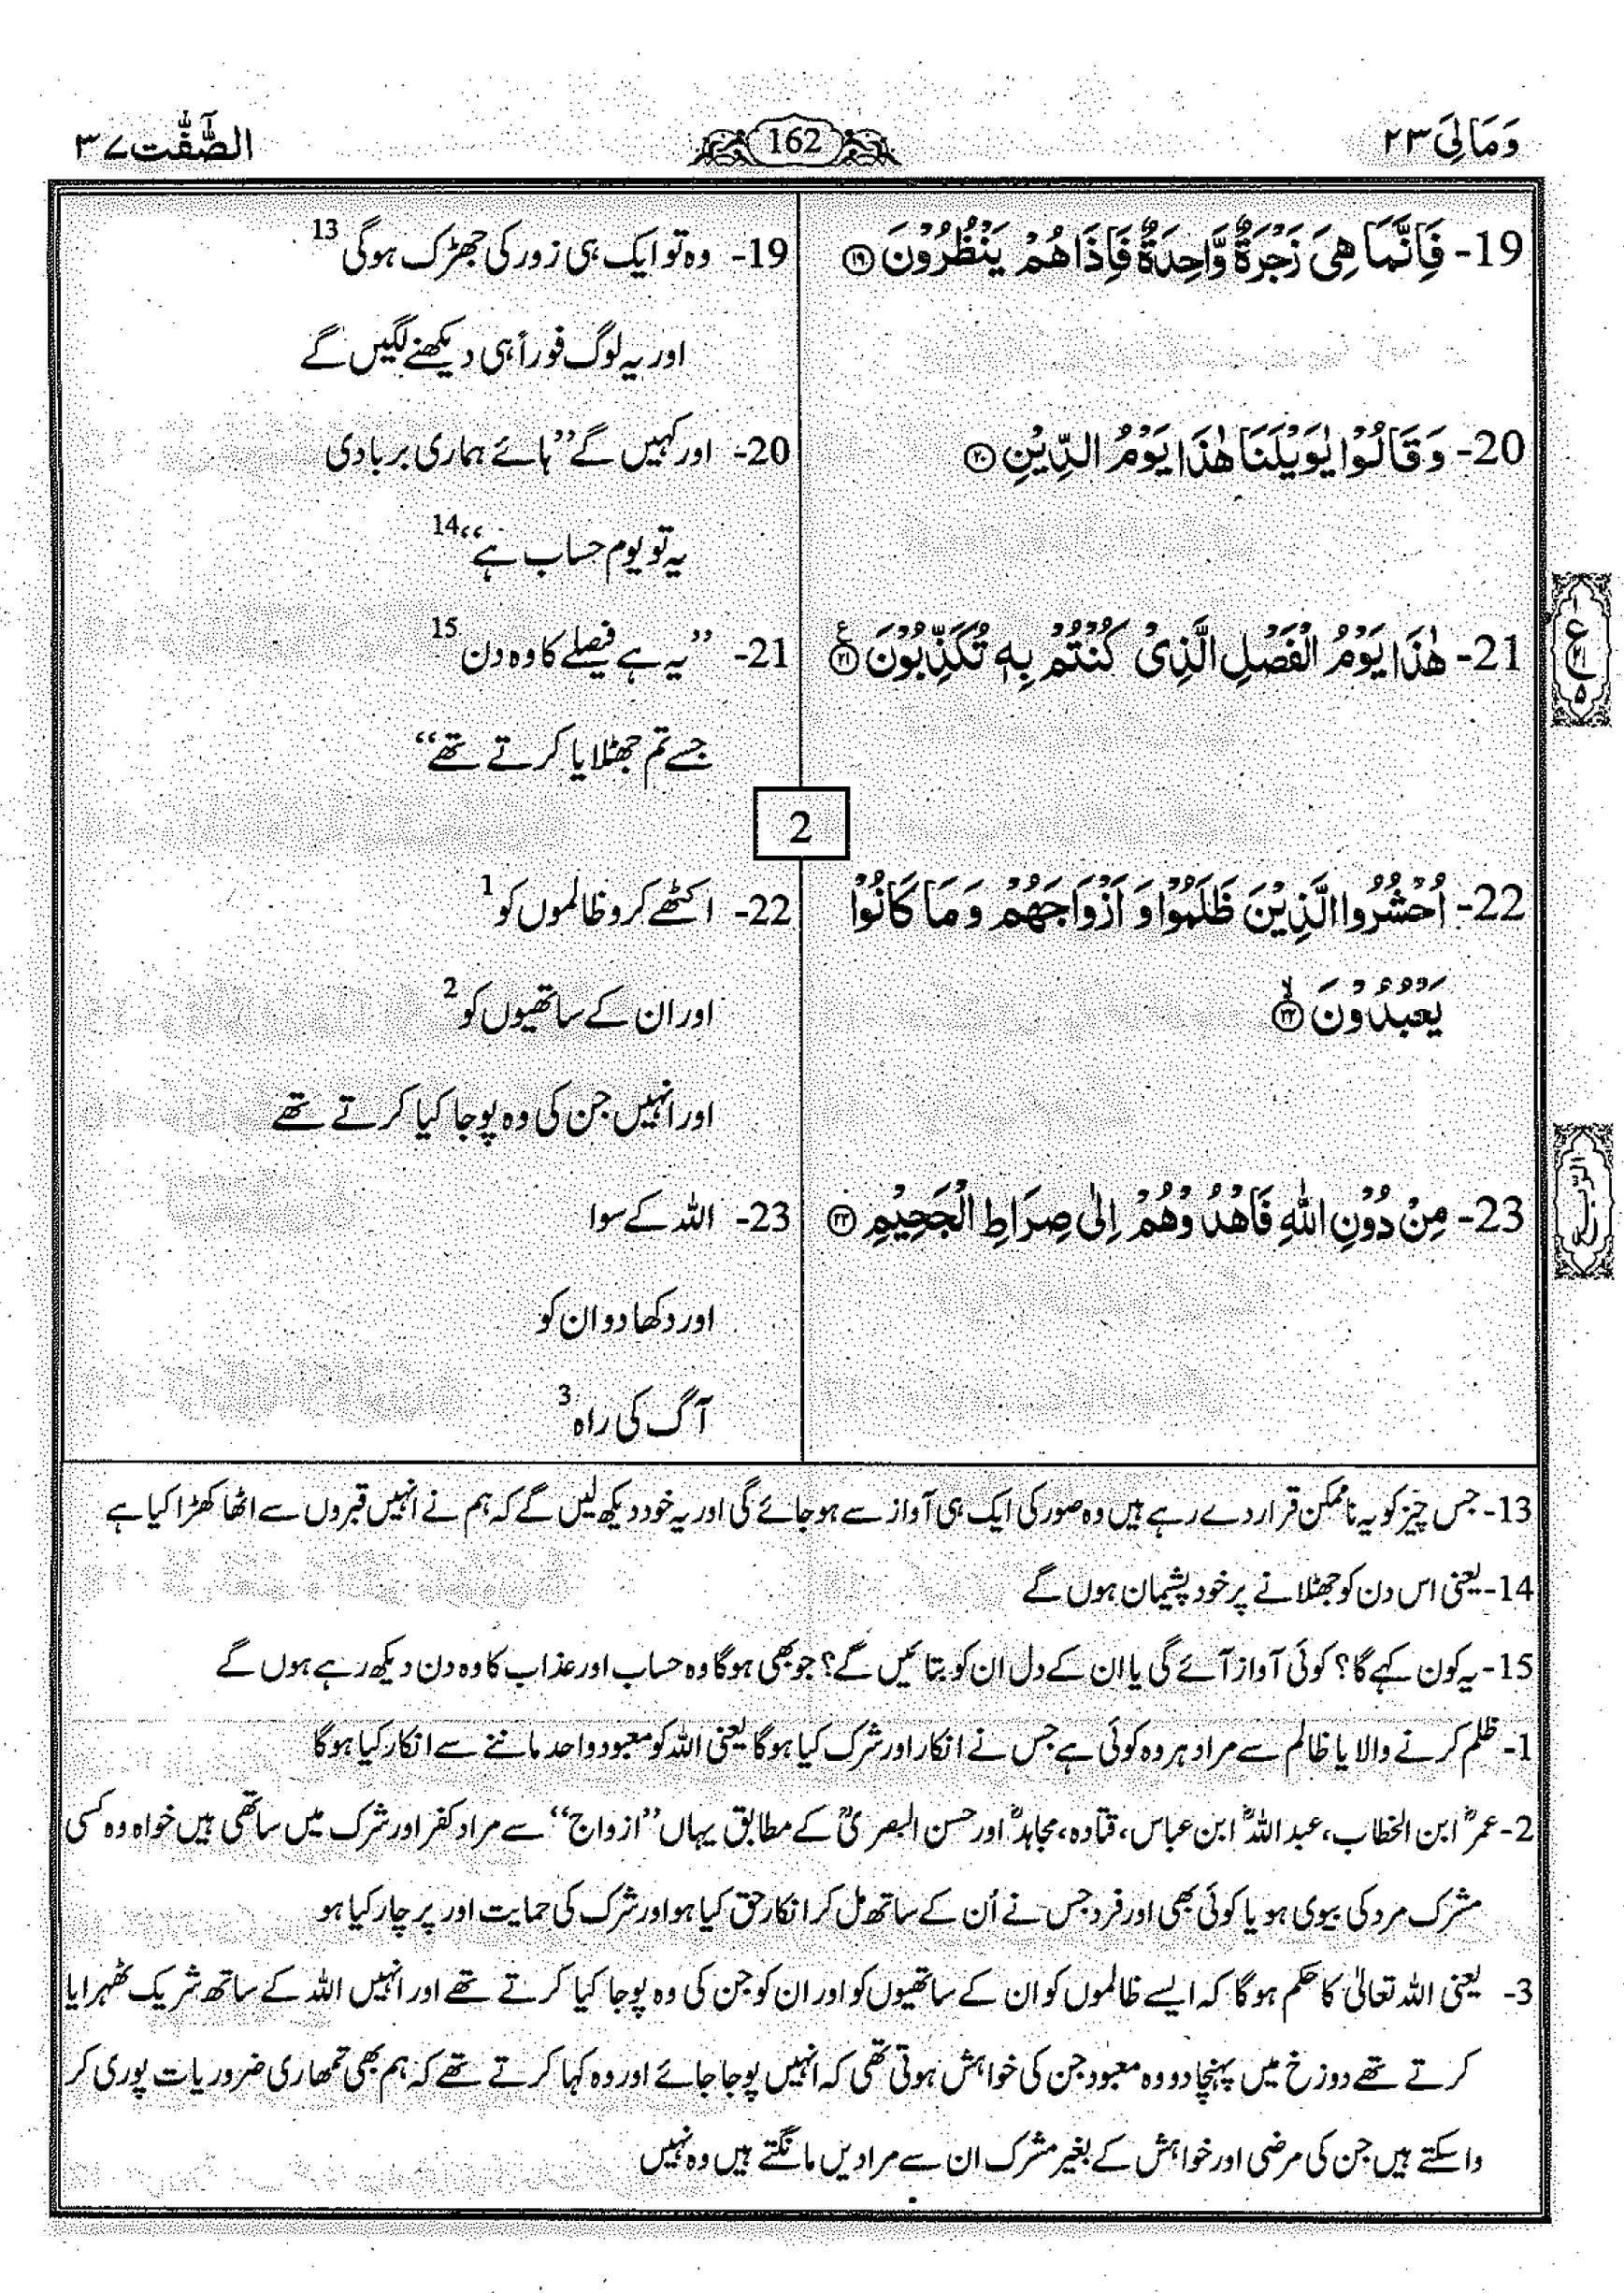 وَمَالِیَ ۲۳
162
الصّٰٓفّٰت ۳۷
19- فَاِنَّمَا هِیَ زَجْرَةٌ وَّاحِدَةٌ فَاِذَا هُمْ یَنْظُرُوْنَ ﴿۱۹﴾
19- وہ تو ایک ہی زور کی جھڑک ہوگی 13
اور یہ لوگ فوراً ہی دیکھنے لگیں گے
20- وَ قَالُوْا یٰوَیْلَنَا هٰذَا یَوْمُ الدِّیْنِ ﴿۲۰﴾
20- اور کہیں گے ”ہائے ہماری بربادی
یہ تو یوم حساب ہے“ 14
21- هٰذَا یَوْمُ الْفَصْلِ الَّذِیْ كُنْتُمْ بِهٖ تُكَذِّبُوْنَ ﴿۲۱﴾ ع
21- ”یہ ہے فیصلے کا وہ دن 15
جسے تم جھٹلایا کرتے تھے“
۱
ع
۲۱
۵
2
22- اُحْشُرُوا الَّذِیْنَ ظَلَمُوْا وَ اَزْوَاجَهُمْ وَ مَا كَانُوْا
یَعْبُدُوْنَ ۙ﴿۲۲﴾
22- اکٹھے کرو ظالموں کو 1
اور ان کے ساتھیوں کو 2
اور انہیں جن کی وہ پوجا کیا کرتے تھے
23- مِنْ دُوْنِ اللّٰهِ فَاهْدُوْهُمْ اِلٰی صِرَاطِ الْجَحِیْمِ ﴿۲۳﴾
23- اللہ کے سوا
اور دکھا دو ان کو
آگ کی راہ 3
13- جس چیز کو یہ ناممکن قرار دے رہے ہیں وہ صور کی ایک ہی آواز سے ہو جائے گی اور یہ خود دیکھ لیں گے کہ ہم نے انہیں قبروں سے اٹھا کھڑا کیا ہے
14- یعنی اس دن کو جھٹلانے پر خود پشیمان ہوں گے
15- یہ کون کہے گا؟ کوئی آواز آئے گی یا ان کے دل ان کو بتائیں گے؟ جو بھی ہوگا وہ حساب اور عذاب کا وہ دن دیکھ رہے ہوں گے
1- ظلم کرنے والا یا ظالم سے مراد ہر وہ کوئی ہے جس نے انکار اور شرک کیا ہوگا یعنی اللہ کو معبود واحد ماننے سے انکار کیا ہوگا
2- عمرؓ ابن الخطاب، عبداللہؓ ابن عباس، قتادہ، مجاہدؒ اور حسن البصریؒ کے مطابق یہاں ”ازواج“ سے مراد کفر اور شرک میں ساتھی ہیں خواہ وہ کسی
مشرک مرد کی بیوی ہو یا کوئی بھی اور فرد جس نے اُن کے ساتھ مل کر انکار حق کیا ہو اور شرک کی حمایت اور پرچار کیا ہو
3- یعنی اللہ تعالیٰ کا حکم ہوگا کہ ایسے ظالموں کو ان کے ساتھیوں کو اور ان کو جن کی وہ پوجا کیا کرتے تھے اور انہیں اللہ کے ساتھ شریک ٹھہرایا
کرتے تھے دوزخ میں پہنچا دو وہ معبود جن کی خواہش ہوتی تھی کہ انہیں پوجا جائے اور وہ کہا کرتے تھے کہ ہم بھی تمھاری ضروریات پوری کر
وا سکتے ہیں جن کی مرضی اور خواہش کے بغیر مشرک ان سے مرادیں مانگتے ہیں وہ نہیں